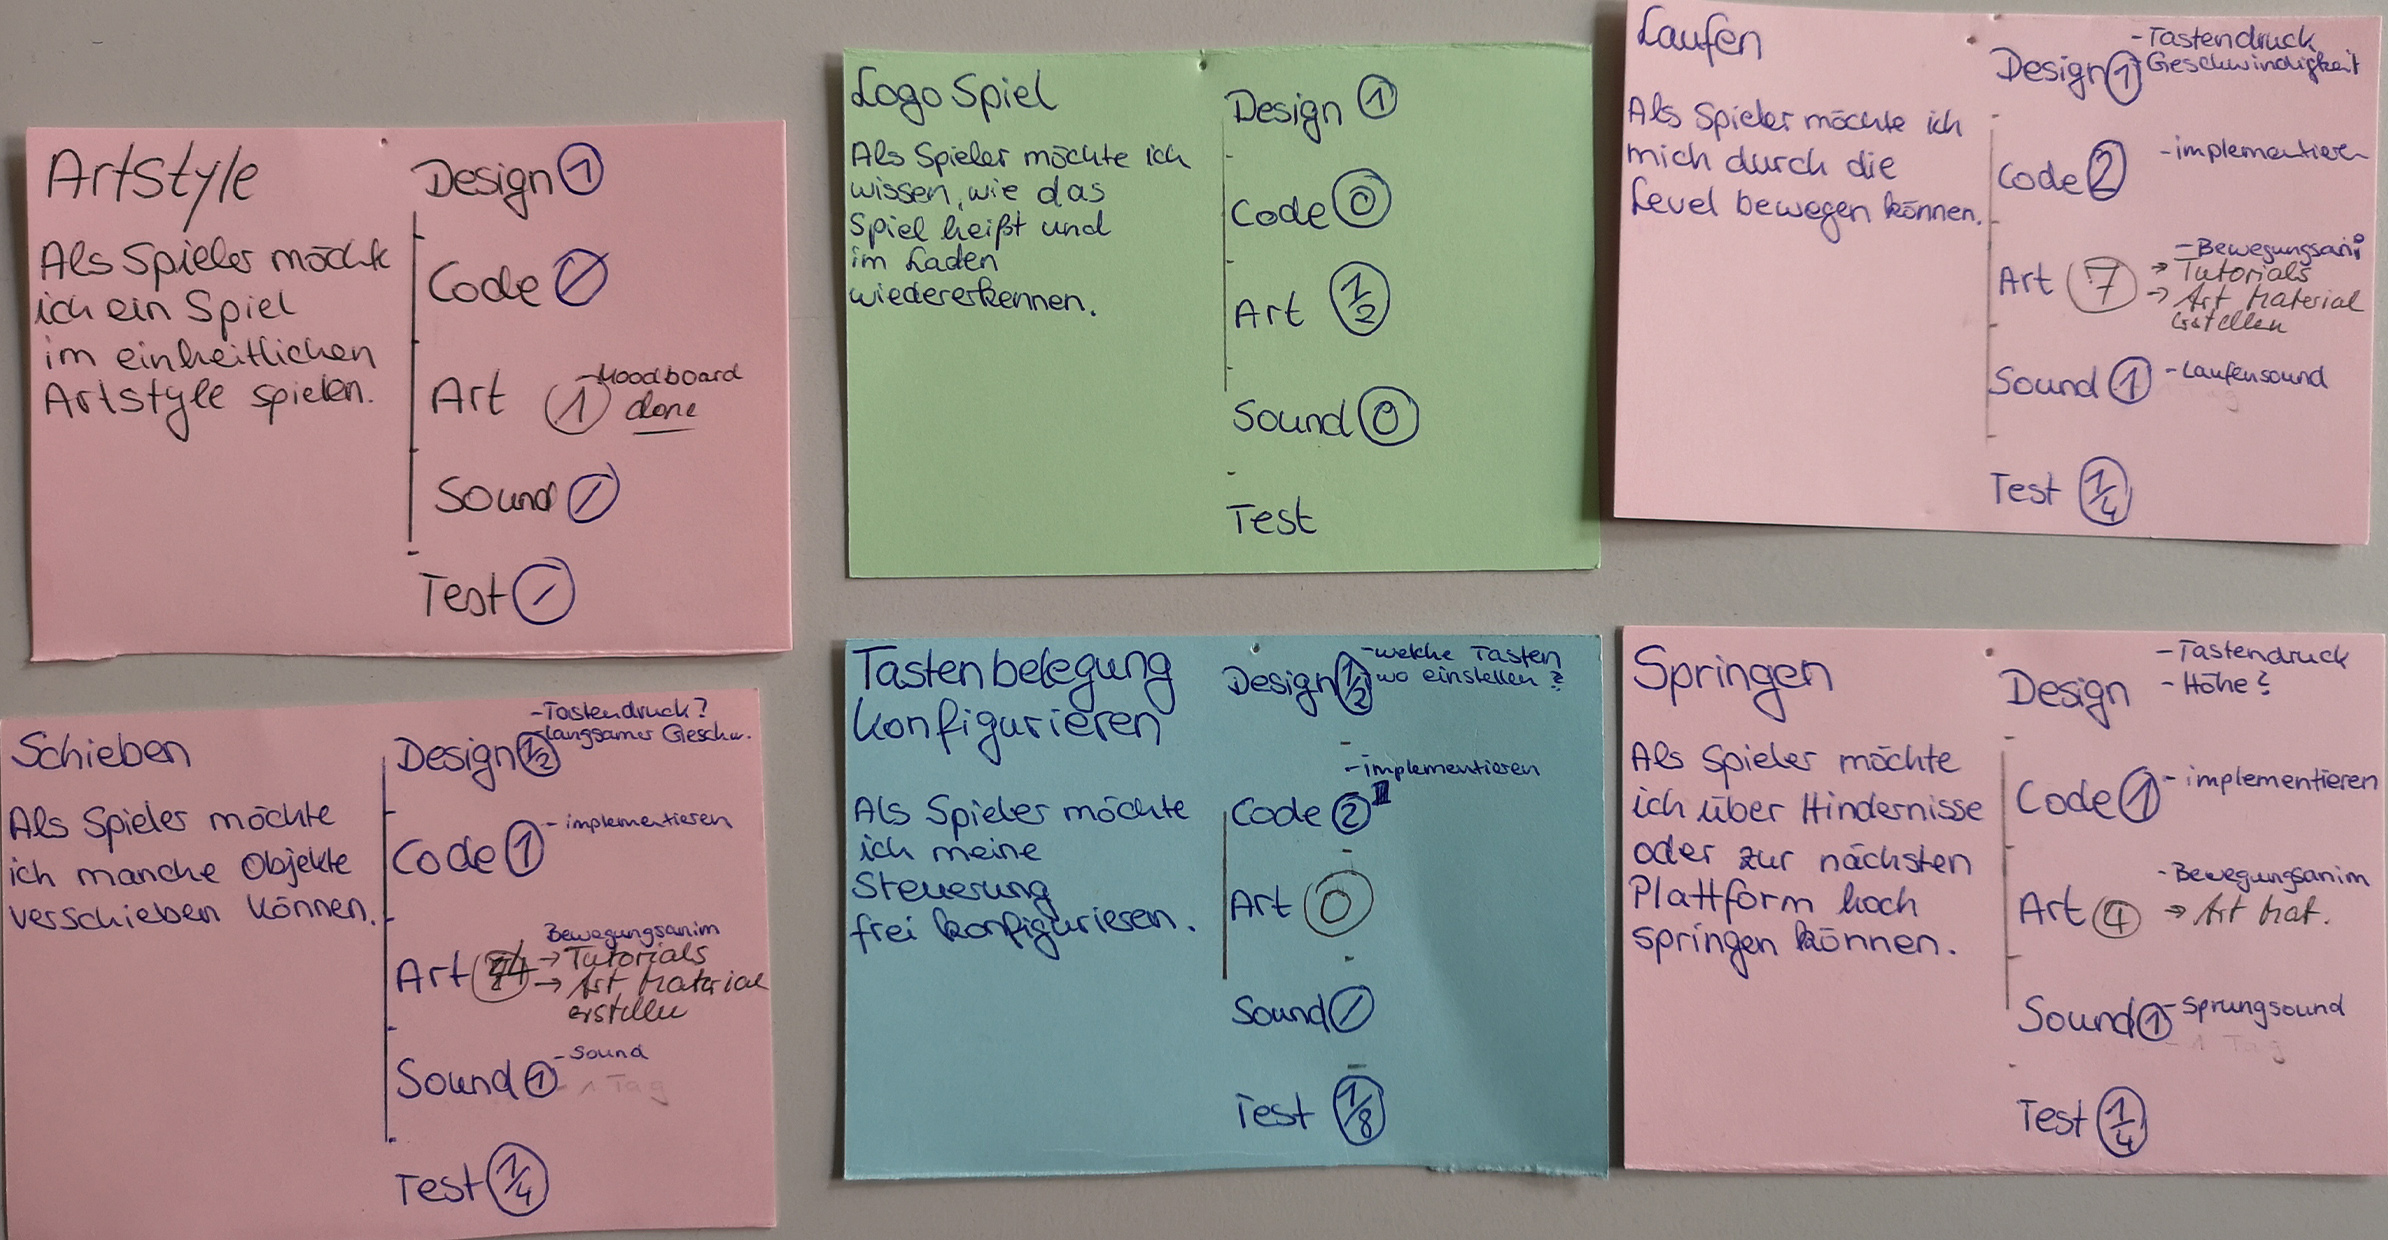 Artstyle
Als Spieler möchte
ich ein Spiel
im einheitlichen
Artstyle spielen.
Design 1
Code 0
Art 1 -Moodboard
done
Sound /
Test /
Logo Spiel
Als Spieler möchte ich
wissen, wie das
Spiel heißt und
im Laden
wiedererkennen.
Design 1
Code 0
Art 1/2
Sound 0
Test
Laufen
Als Spieler möchte ich
mich durch die
Level bewegen können.
Design 1 -Tastendruck
-Geschwindigkeit
Code 2 -implementieren
Art 7 -Bewegungsani
→ Tutorials
→ Art Material
erstellen
Sound 1 -Laufensound
Test 1/4
Schieben
Als Spieler möchte
ich manche Objekte
verschieben können.
Design 1/2 -Tastendruck?
-langsamer Geschw.
Code 1 -implementieren
Art Bewegungsanim
→ Tutorials
→ Art Material
erstellen
Sound 1 -Sound
- 1 Tag
Test 1/4
Tastenbelegung
konfigurieren
Als Spieler möchte
ich meine
Steuerung
frei konfigurieren.
Design 1/2 -welche Tasten
wo einstellen?
Code 2 -implementieren
Art 0
Sound /
Test 1/8
Springen
Als Spieler möchte
ich über Hindernisse
oder zur nächsten
Plattform hoch
springen können.
Design -Tastendruck
-Höhe?
Code 1 -implementieren
Art 4 -Bewegungsanim
→ Art Mat.
Sound 1 -Sprungsound
- 1 Tag
Test 1/4